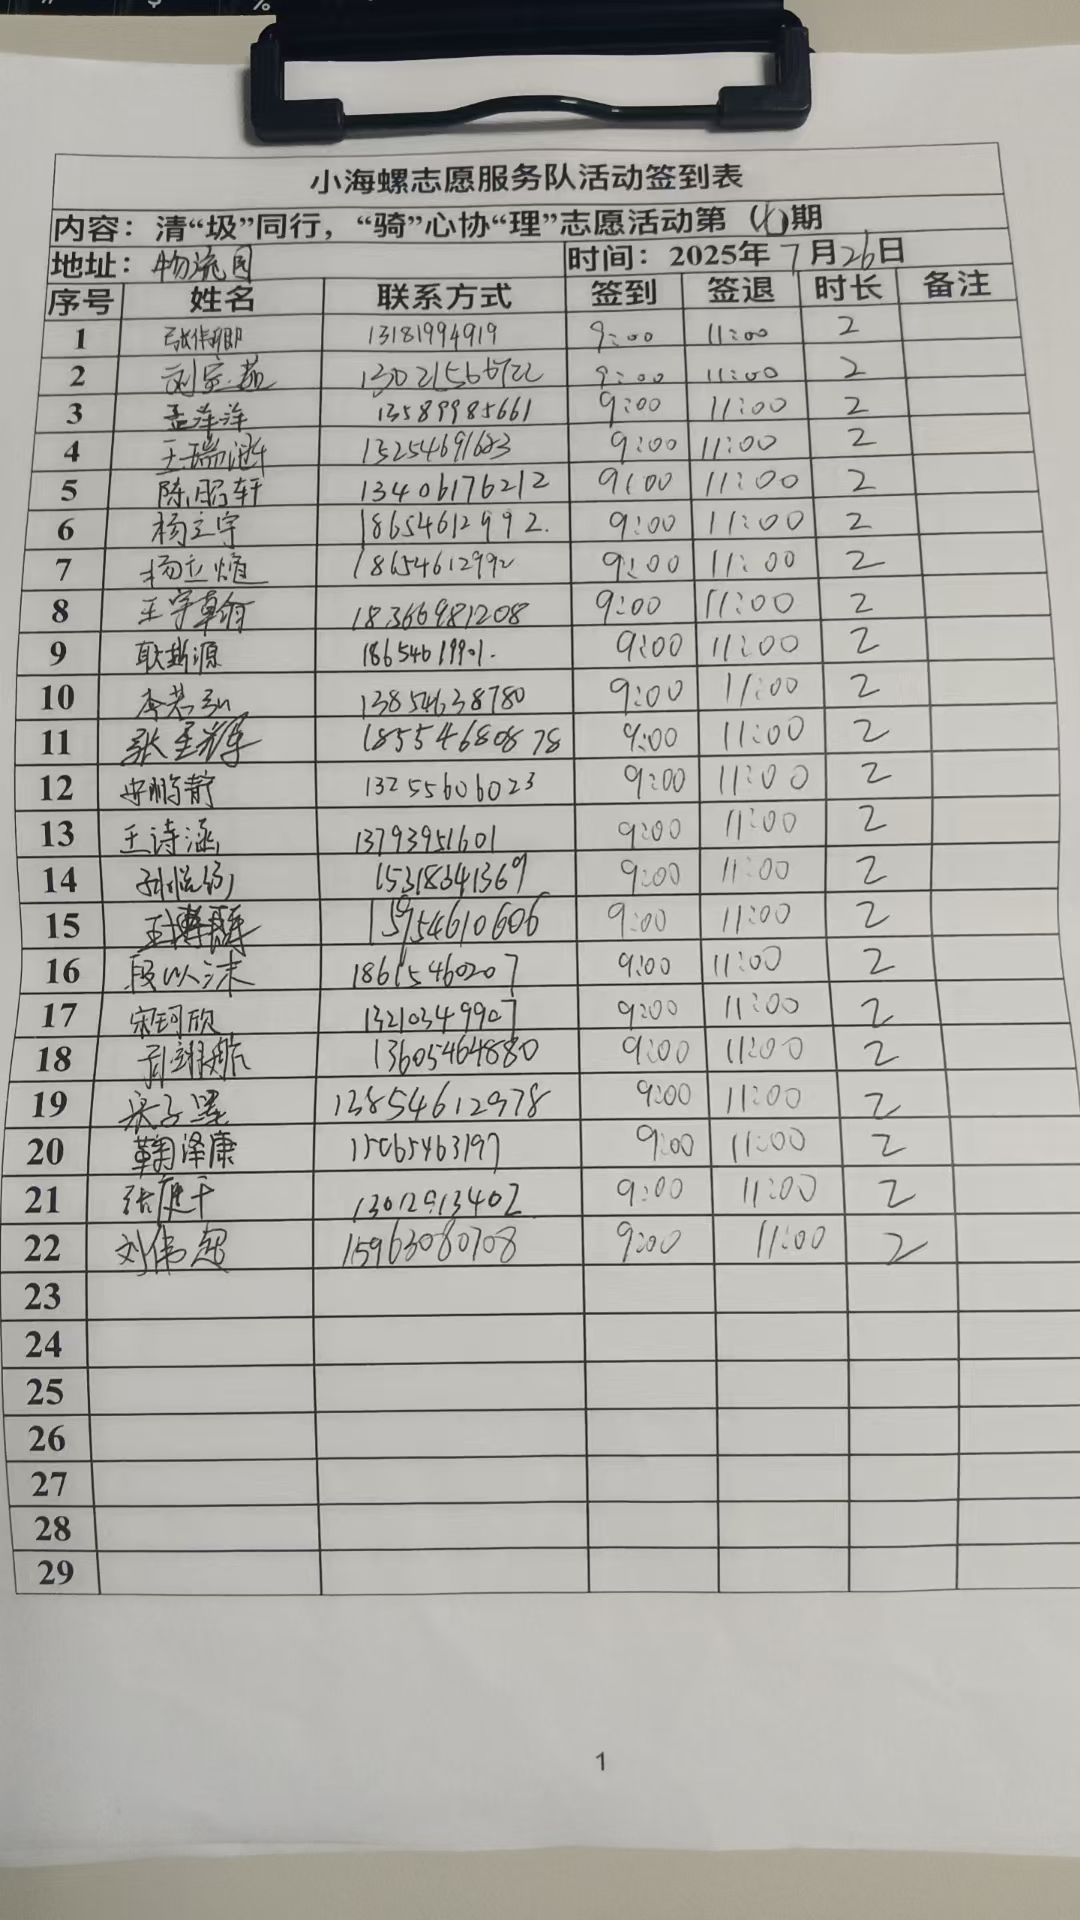 小海螺志愿服务队活动签到表
内容：清“圾”同行，“骑”心协“理”志愿活动第（七）期
地址：物流园 时间：2025年7月26日
序号 姓名 联系方式 签到 签退 时长 备注
1 13181994919 9:00 11:00 2
2 9:00 11:00 2
3 孟洋洋 13589985661 9:00 11:00 2
4 王瑞涵 9:00 11:00 2
5 陈鹏轩 13406176212 9:00 11:00 2
6 杨立宇 18654612992. 9:00 11:00 2
7 杨立煊 18654612992 9:00 11:00 2
8 王宇翰 18366981208 9:00 11:00 2
9 耿斯源 18654619901. 9:00 11:00 2
10 李若弘 13854638780 9:00 11:00 2
11 18554680878 9:00 11:00 2
12 安鹏静 13255606023 9:00 11:00 2
13 王诗涵 13793951601 9:00 11:00 2
14 15318341369 9:00 11:00 2
15 15954610606 9:00 11:00 2
16 段以沫 18615460207 9:00 11:00 2
17 宋珂欣 13210349907 9:00 11:00 2
18 13605464880 9:00 11:00 2
19 梁子墨 13854612978 9:00 11:00 2
20 鞠泽康 15065463197 9:00 11:00 2
21 张庭于 13012913402 9:00 11:00 2
22 刘伟超 15963080708 9:00 11:00 2
23
24
25
26
27
28
29
1